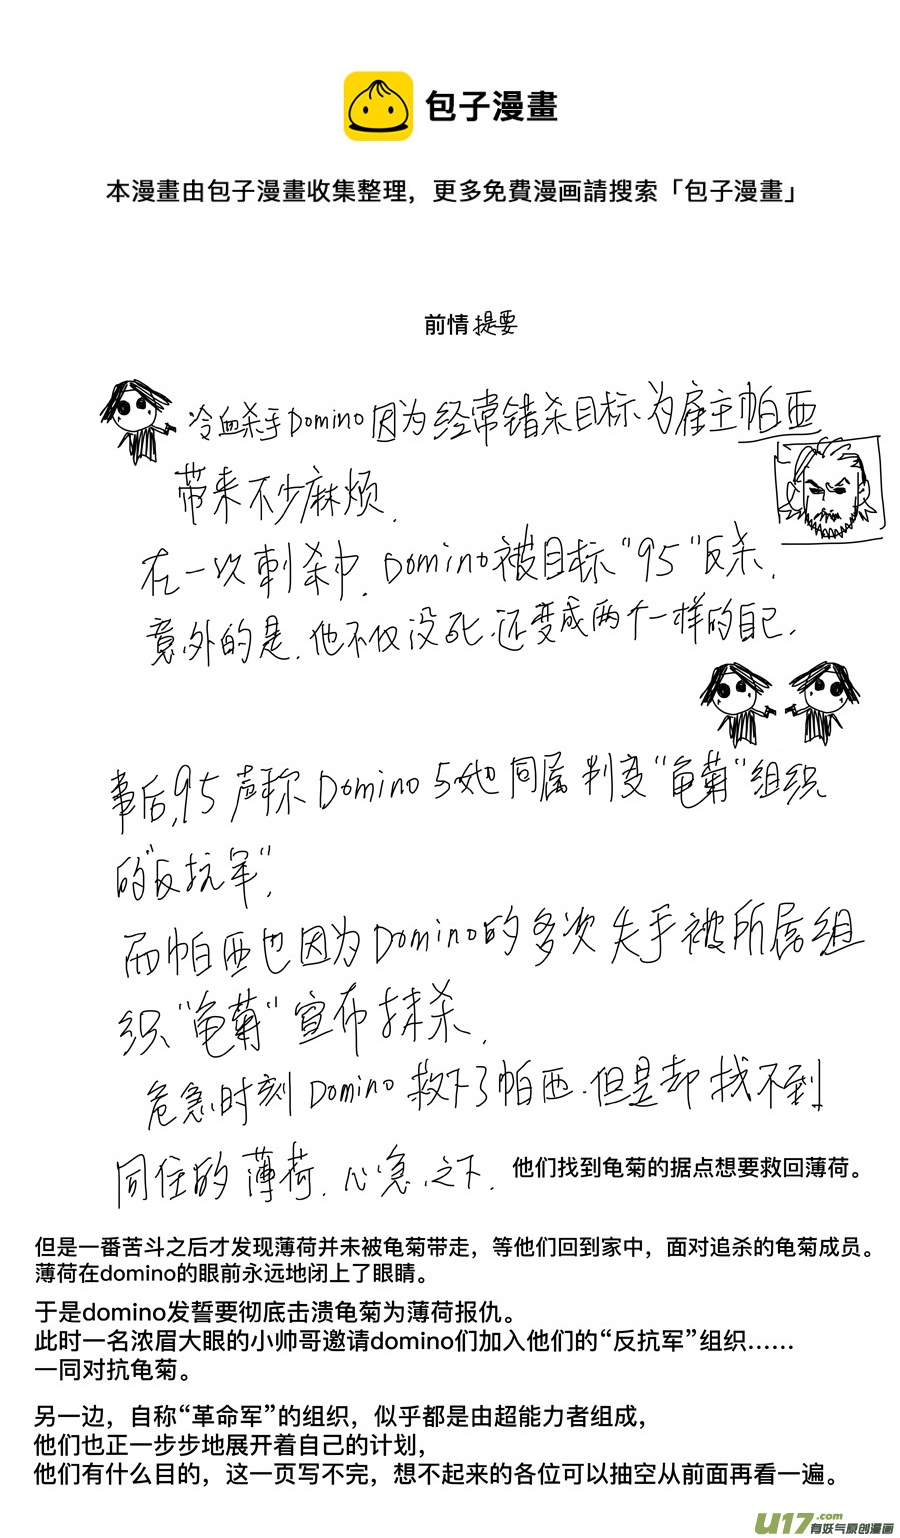 包子漫畫
本漫畫由包子漫畫收集整理，更多免費漫画請搜索「包子漫畫」
前情提要
冷血杀手Domino因为经常错杀目标为雇主帕西
带来不少麻烦.
在一次刺杀中.Domino被目标“95”反杀.
意外的是.他不仅没死.还变成两个一样的自己.
事后,95声称Domino与她同属判变“龟菊”组织
的“反抗军”.
而帕西也因为Domino的多次失手被所属组
织“龟菊”宣布抹杀.
危急时刻Domino救下了帕西.但是却找不到
同住的薄荷.心急之下. 他们找到龟菊的据点想要救回薄荷。
但是一番苦斗之后才发现薄荷并未被龟菊带走，等他们回到家中，面对追杀的龟菊成员。
薄荷在domino的眼前永远地闭上了眼睛。
于是domino发誓要彻底击溃龟菊为薄荷报仇。
此时一名浓眉大眼的小帅哥邀请domino们加入他们的“反抗军”组织……
一同对抗龟菊。
另一边，自称“革命军”的组织，似乎都是由超能力者组成，
他们也正一步步地展开着自己的计划，
他们有什么目的，这一页写不完，想不起来的各位可以抽空从前面再看一遍。
U17.com
有妖气原创漫画